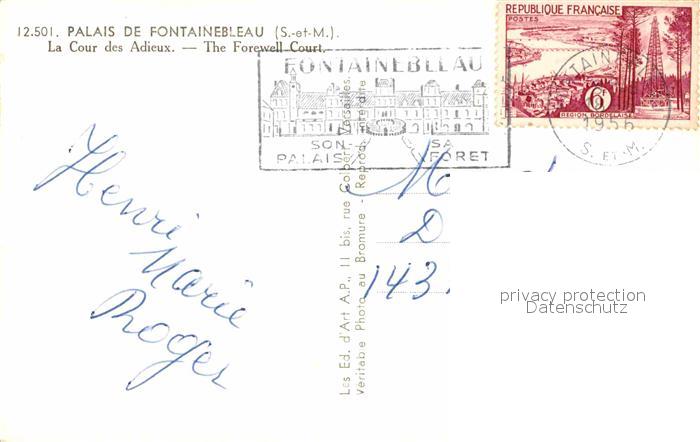 12.501. PALAIS DE FONTAINEBLEAU (S.-et-M.).
La Cour des Adieux. — The Forewell Court.
FONTAINEBLEAU
SON PALAIS
SA FORET
REPUBLIQUE FRANÇAISE
POSTES
6F
REGION BORDELAISE
1956
S. ET-M.
Henri
Marie
Roger
M
D
143.
Les Ed. d'Art A.P., 11 bis, rue Colbert, Versailles.
Veritable Photo au Bromure - Reprod. interdite
privacy protection
Datenschutz